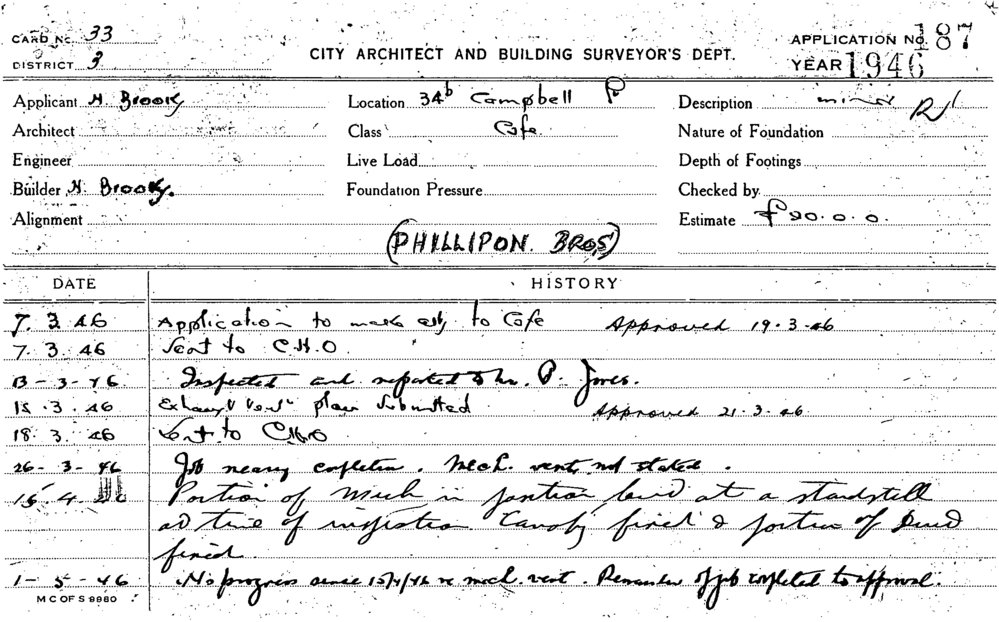 CARD No. 33
DISTRICT 3
CITY ARCHITECT AND BUILDING SURVEYOR'S DEPT.
APPLICATION No. 187
YEAR 1946
Applicant H. Brook
Location 34b Campbell P
Description minor
Architect
Class Cafe
Nature of Foundation
Engineer
Live Load
Depth of Footings
Builder H. Brook
Foundation Pressure
Checked by
Alignment
Estimate £20.0.0.
(PHILLIPON. BROS)
DATE HISTORY
7. 3. 46 Application to make to Cafe Approved 19.3.46
7. 3. 46 Sent to C.H.O
13-3-46 Inspected and reported to Mr. P. Jones.
15.3.46 Exhaust Vent plan submitted Approved 21.3.46
18.3.46 Sent to CHO
26-3-46 Job nearing completion. Mech. vent. not started.
15.4. Portion of Mech in position at a standstill
at time of inspection Canopy fixed & portion of
fixed.
1-5-46 No progress since 15/4/46 re mech. vent. Remainder of job completed to approval.
M C OF S 9980